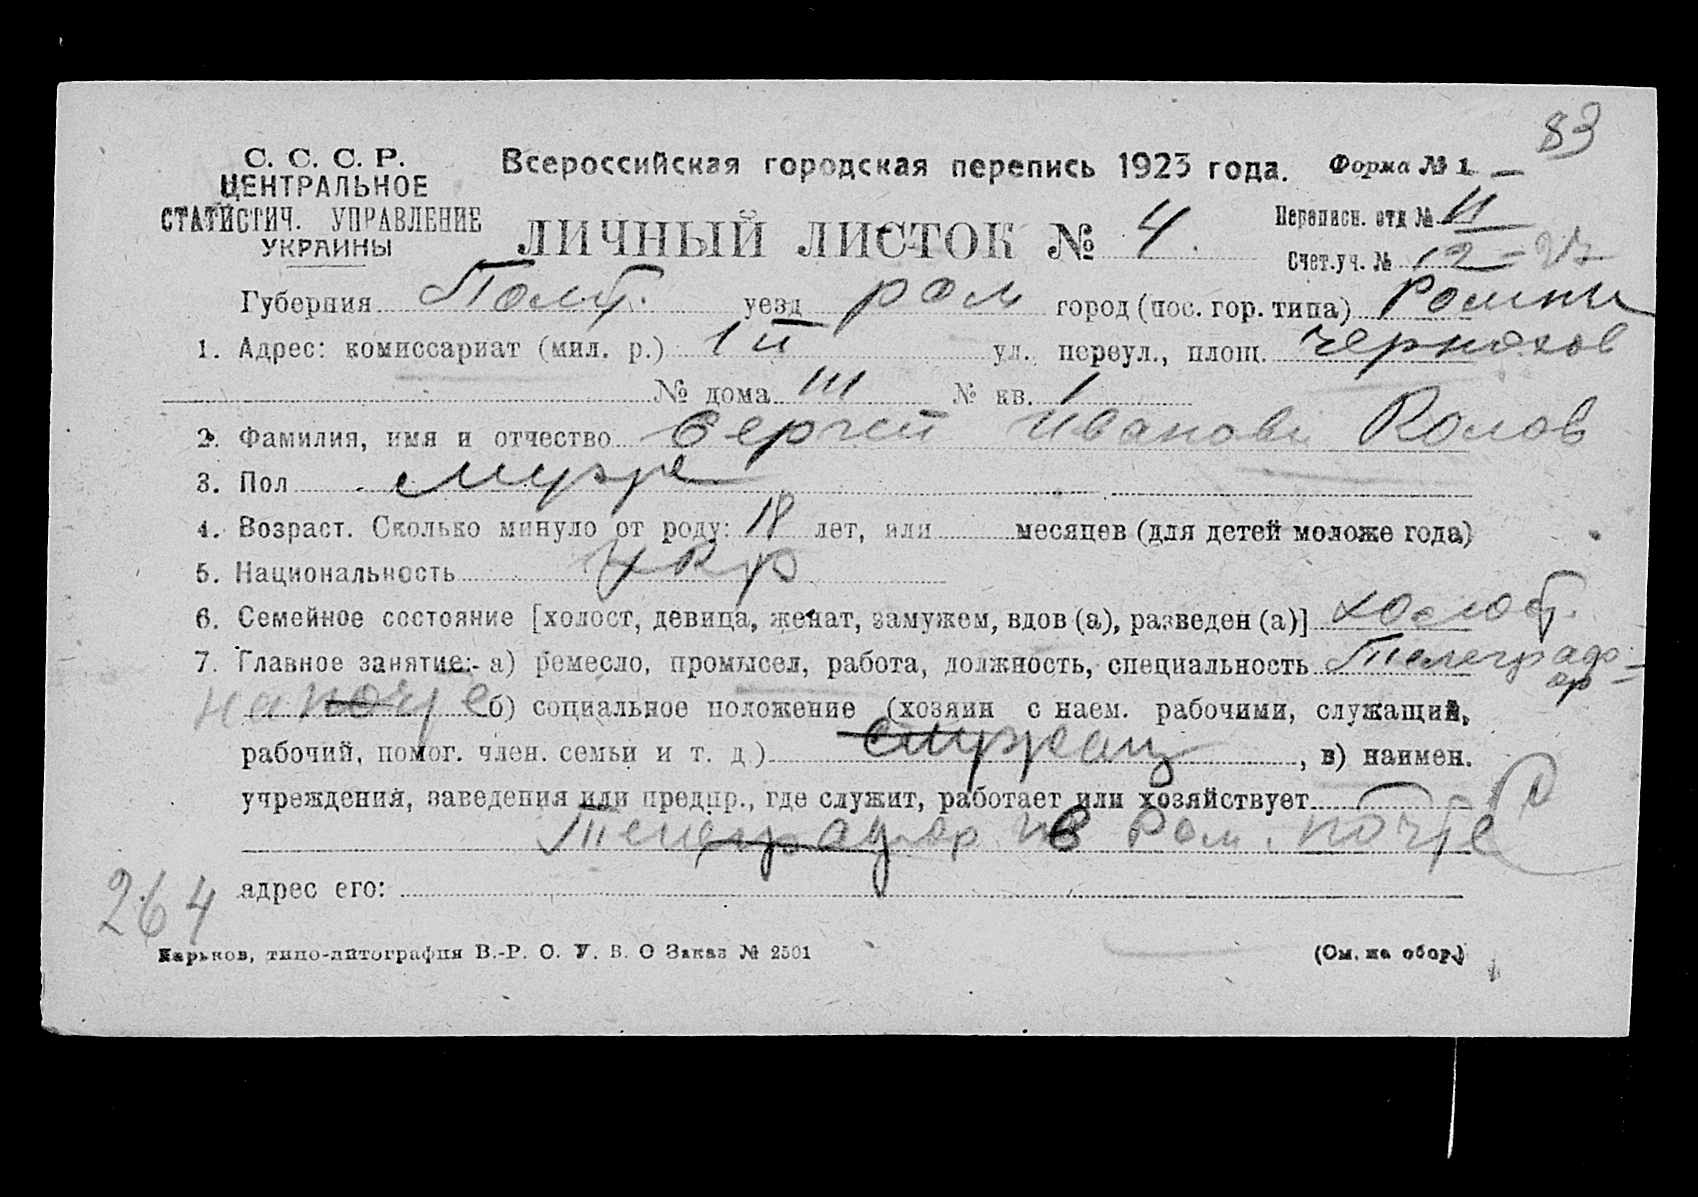 83
С. С. С. Р.
ЦЕНТРАЛЬНОЕ
СТАТИСТИЧ. УПРАВЛЕНИЕ
УКРАИНЫ
Всероссийская городская перепись 1923 года. Форма № 1
ЛИЧНЫЙ ЛИСТОК № 4.
Переписн. отд № II
Счет.уч. № 12
Губерния Полт. уезд ром город (пос. гор. типа) Ромны
1. Адрес: комиссариат (мил. р.) 1й ул., переул., площ.
№ дома III № кв. 1
2. Фамилия, имя и отчество Сергей Иванови
3. Пол муж
4. Возраст. Сколько минуло от роду: 18 лет, или месяцев (для детей моложе года)
5. Национальность Укр
6. Семейное состояние [холост, девица, женат, замужем, вдов (а), разведен (а)] холост.
7. Главное занятие:- а) ремесло, промысел, работа, должность, специальность Телеграф
на почте б) социальное положение (хозяин с наем. рабочими, служащий,
рабочий, помог. член. семьи и т. д.) служащ , в) наимен.
учреждения, заведения или предпр., где служит, работает или хозяйствует
Телеграф в Ром. почте
264
адрес его:
Харьков, типо-литография В.-Р. О. У. В. О Заказ № 2501 (См. на обор.)